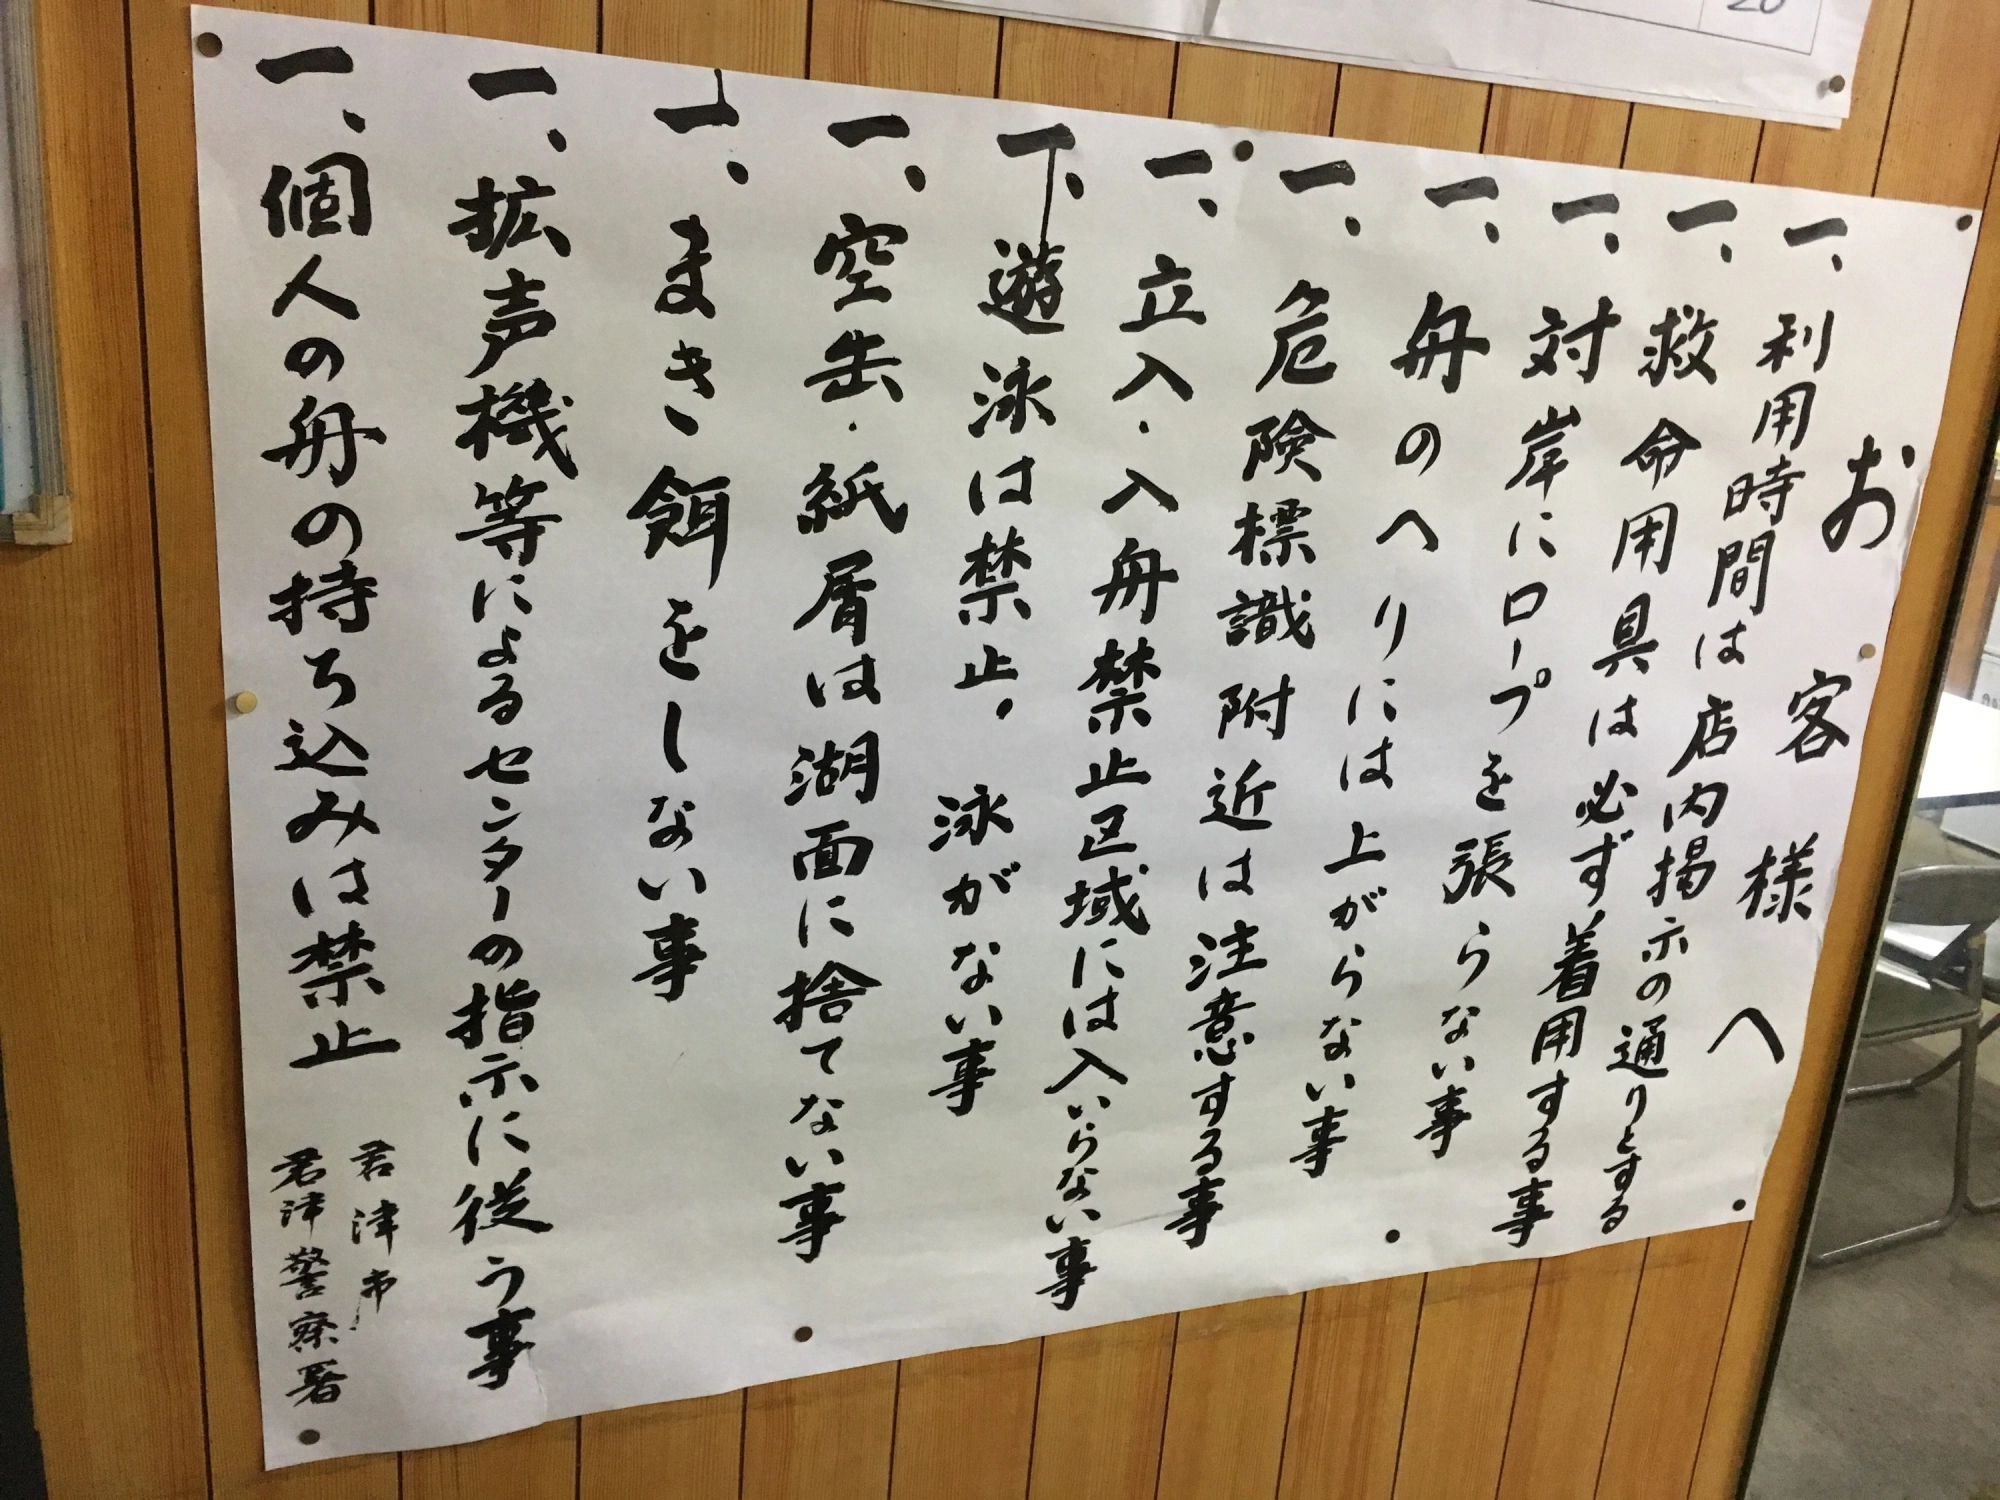 お客様へ
一、利用時間は店内掲示の通りとする
一、救命用具は必ず着用する事
一、対岸にロープを張らない事
一、舟のへりには上がらない事
一、危険標識附近は注意する事
一、立入・入舟禁止区域には入いらない事
一、遊泳は禁止。泳がない事
一、空缶・紙屑は湖面に捨てない事
一、まき餌をしない事
一、拡声機等によるセンターの指示に従う事
一、個人の舟の持ち込みは禁止
君津市
君津警察署
20